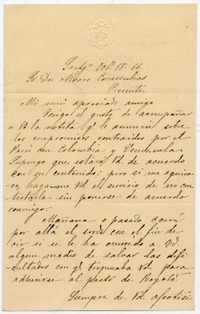 Sr Dn Alvaro Covarrubias
Presente
Mi mui apreciado amigo
Tengo el gusto de acompañar
a Vd la notita q. le anuncié sobre
los compromisos contraidos por el
Perú con Colombia y Venezuela
Supongo que estará Vd de acuerdo
con su contenido pero si me equivo-
co, hagame Vd el servicio de no con-
testarla sin ponerse de acuerdo
conmigo.
Mañana o pasado caeré
por allá el sordo con el fin de
oir si se le ha ocurrido a Vd.
algun medio de salvar las difi-
cultades con q. tropezaba Vd para
adherirse al pacto de Bogotá.
Siempre de Vd afectisi-